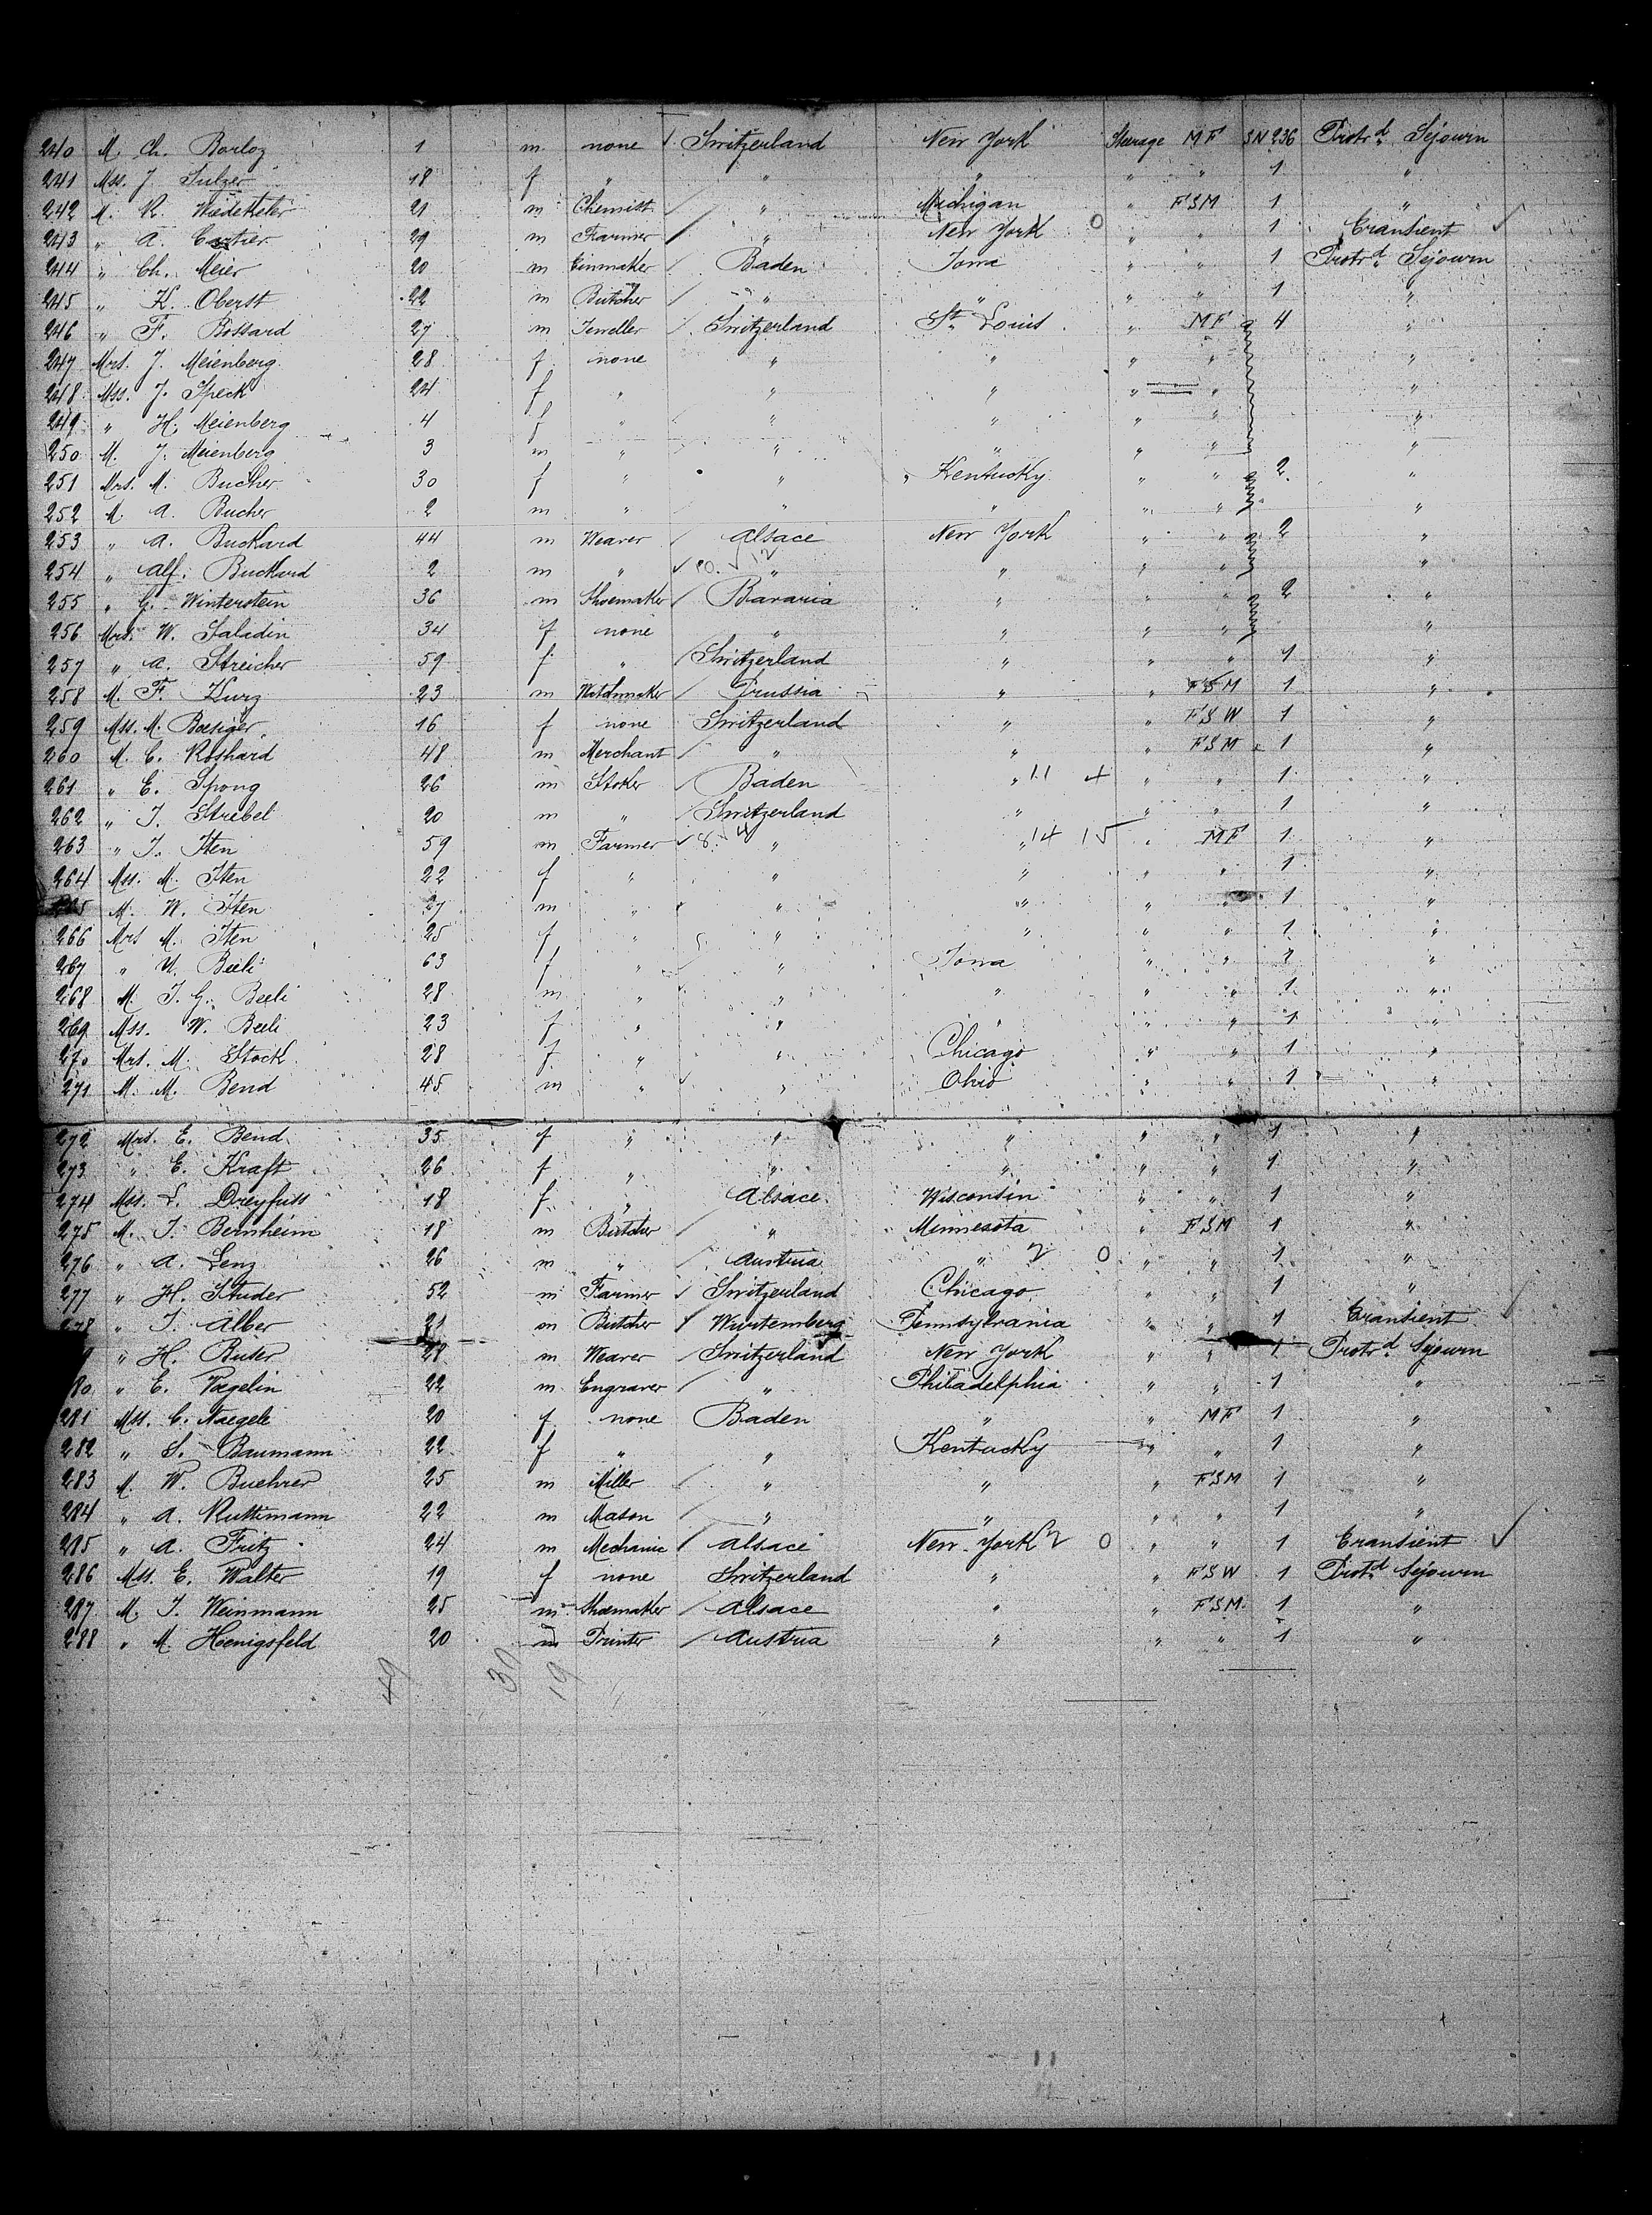 240 M. Ch. Borloz 1 m. none Switzerland New York Steerage MF SN 236 Protrd. Sejourn
241 Mss. J. Sulzer 18 f " " " " " 1 "
242 M. R. 21 m Chemist " Michigan " FSM 1 "
243 " A. Cartier 29 m Farmer " New York 0 " " 1 Transient
244 " Ch. Meier 20 m Tinmaker Baden Iowa " " 1 Protrd. Sejourn
245 " K. Oberst 22 m Butcher " " " " 1 "
246 " F. Bossard 27 m Jeweller Switzerland St. Louis " MF 4 "
247 Mrs. J. Meienberg 28 f none " " " " "
248 Mss. J. Speck 24 f " " " " " "
249 " H. Meienberg 4 f " " " " " "
250 M. J. Meienberg 3 m " " " " " "
251 Mrs. M. Bucher 30 f " " Kentucky " " 2 "
252 M. A. Bucher 2 m " " " " " "
253 " A. Buckard 44 m Weaver Alsace New York " " 2 "
254 " Alf. Buckard 2 m " 10. 12 " " " " "
255 " G. Winterstein 36 m Shoemaker Bavaria " " " 2 "
256 Mrs. W. Saladin 34 f none " " " " "
257 " A. Streicher 59 f " Switzerland " " " 1 "
258 M. F. Kurz 23 m Watchmaker Prussia " " FSM 1 "
259 Mss. M. Boesiger 16 f none Switzerland " " FSW 1 "
260 M. C. Roshard 48 m Merchant " " " FSM 1 "
261 " E. Spong 26 m Stoker Baden " 11 4 " " 1 "
262 " J. Strebel 20 m " Switzerland " " " 1 "
263 " J. Iten 59 m Farmer 8. 4 " " 14 15 " MF 1 "
264 Mss. M. Iten 22 f " " " " " 1 "
265 M. W. Iten 27 m " " " " " 1 "
266 Mrs M. Iten 25 f " " " " " 1 "
267 " U. Beeli 63 f " " Iowa " " 1 "
268 M. J. G. Beeli 28 m " " " " " 1 "
269 Mss. W. Beeli 23 f " " " " " 1 "
270 Mrs. M. Stock 28 f " " Chicago " " 1 "
271 M. M. Bend 45 m " " Ohio " " 1 "
272 Mrs. E. Bend 35 f " " " " " 1 "
273 " E. Kraft 26 f " " " " " 1 "
274 Mss. L. Dreyfuss 18 f " Alsace Wisconsin " " 1 "
275 M. J. Bernheim 18 m Butcher " Minnesota " FSM 1 "
276 " A. Lenz 26 m " Austria " 2 0 " " 1 "
277 " H. Studer 52 m Farmer Switzerland Chicago " " 1 "
278 " J. Alber 21 m Butcher Wurtemberg Pennsylvania " " 1 Transient
9 " H. Buser 28 m Weaver Switzerland New York " " 1 Protrd. Sejourn
80 " E. Voegelin 22 m Engraver " Philadelphia " " 1 "
281 Mss. C. Naegeli 20 f none Baden " " MF 1 "
282 " S. Baumann 22 f " " Kentucky " " 1 "
283 M. W. Buehrer 25 m Miller " " " FSM 1 "
284 " A. Ruttimann 22 m Mason " " " " 1 "
285 " A. Fritz 24 m Mechanic Alsace New York 2 0 " " 1 Transient
286 Mss. E. Walter 19 f none Switzerland " " FSW 1 Protd. Sejourn
287 M. J. Weinmann 25 m Shoemaker Alsace " " FSM 1 "
288 " M. Hoenigsfeld 20 m Printer Austria " " " 1 "
49 30 19